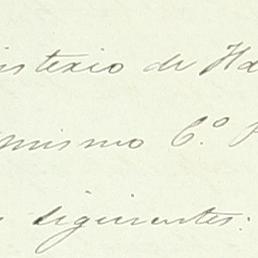 isterio de Ha
mismo 6.º P
s siguientes: